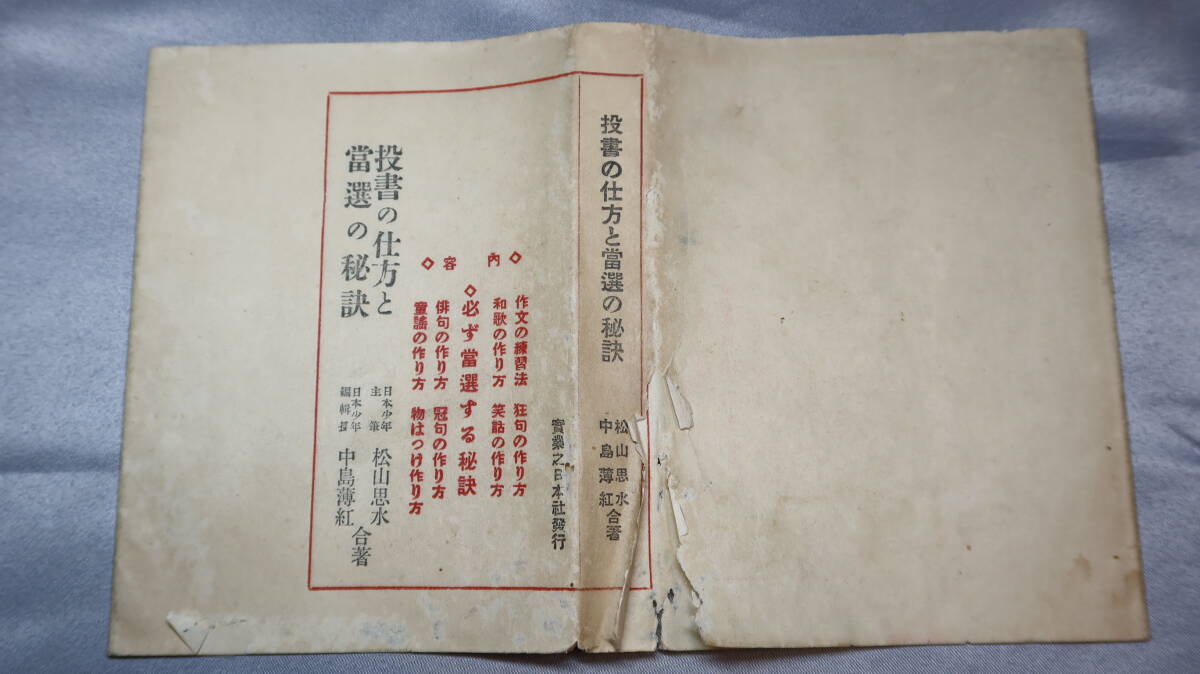 投書の仕方と當選の秘訣
松山思水
中島薄紅
合著
實業之日本社發行
◇內容◇
作文の練習法 狂句の作り方
和歌の作り方 笑話の作り方
◇必ず當選する秘訣
俳句の作り方 冠句の作り方
童謠の作り方 物はつけ作り方
投書の仕方と
當選の秘訣
日本少年主筆 松山思水
日本少年編輯 中島薄紅
合著